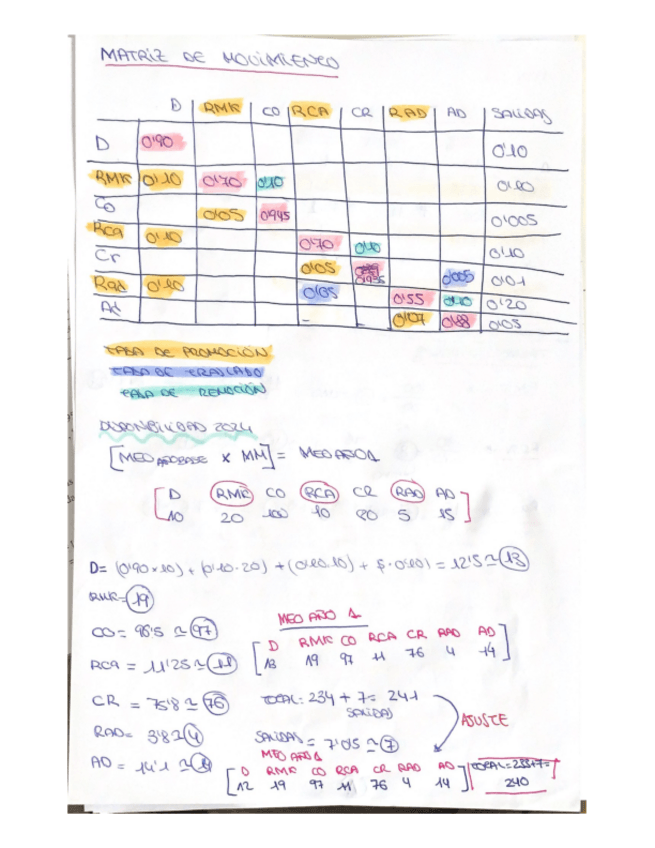 MATRIZ DE MOVIMIENTO
D RMK CO RCA CR RAD AD SALIDAS
D 0'90 0'10
RMK 0'10 0'70 0'10
CO 0'05 0'945 0'005
RCA 0'10 0'70 0'10 0'10
Cr 0'05 0'005 0'01
Rad 0'10 0'05 0'55 0'10 0'20
Ad 0'07 0'88 0'05
TASA DE PROMOCIÓN
TASA DE TRASLADO
TASA DE REMOCIÓN
DISPONIBILIDAD 2024
[MEO AÑO BASE x MM] = MEO AÑO 1
[D RMK CO RCA CR RAD AD]
10 20 100 10 80 5 15
D= (0'90×10) + (0'10·20) + (0'10·10) + 5·0'10) = 12'5 ≃ 13
RMK= 19
CO= 96'5 ≃ 97
RCA = 11'25 ≃ 11
CR = 75'8 ≃ 76
RAD= 3'8 ≃ 4
AD = 14'1 ≃ 14
MEO AÑO 1
[D RMK CO RCA CR RAD AD]
13 19 97 11 76 4 14
TOTAL: 234 + 7 = 241
SALIDAS
AJUSTE
SALIDAS = 7'05 ≃ 7
MEO AÑO 1
[D RMK CO RCA CR RAD AD]
12 19 97 11 76 4 14
TOTAL = 233+7=
240